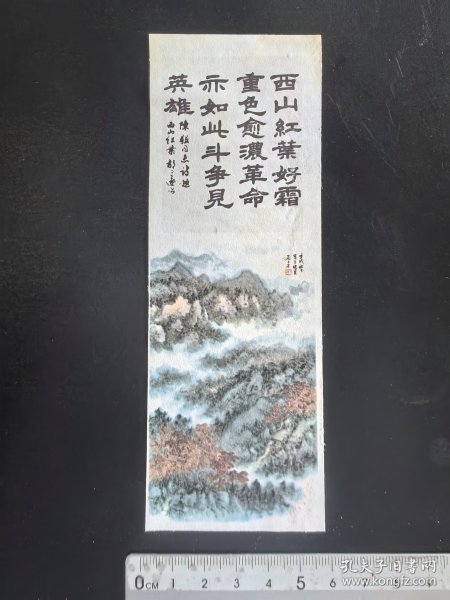 西山紅葉好霜
重色愈濃革命
亦如此斗争見
英雄
陳毅同志詩題
西山紅葉
0CM 1 2 3 4 5 6 7 8 9
孔夫子旧书网